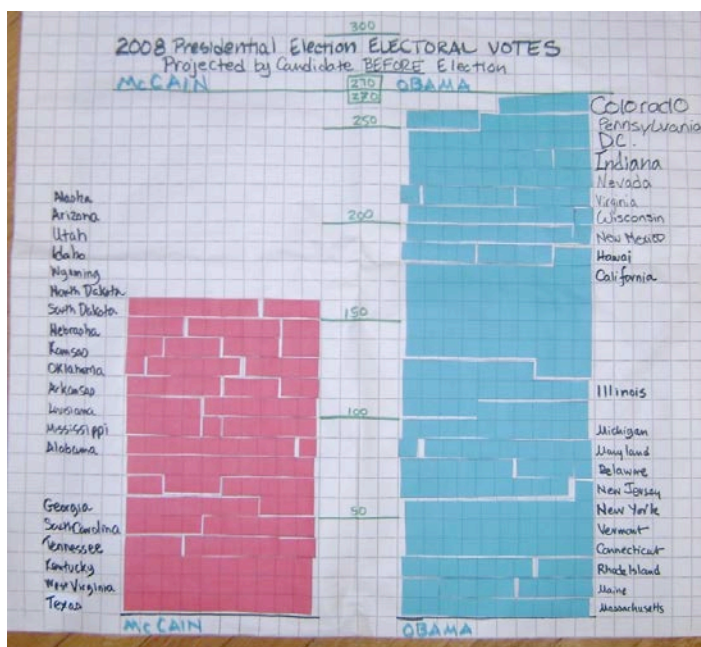 300
2008 Presidential Election ELECTORAL VOTES
Projected by Candidate BEFORE Election
McCAIN
270
OBAMA
270
250
200
150
100
50
Alaska
Arizona
Utah
Idaho
Wyoming
North Dakota
South Dakota
Nebraska
Kansas
Oklahoma
Arkansas
Louisiana
Mississippi
Alabama
Georgia
South Carolina
Tennessee
Kentucky
West Virginia
Texas
Colorado
Pennsylvania
D.C.
Indiana
Nevada
Virginia
Wisconsin
New Mexico
Hawai
California
Illinois
Michigan
Maryland
Delaware
New Jersey
New York
Vermont
Connecticut
Rhode Island
Maine
Massachusetts
McCAIN
OBAMA